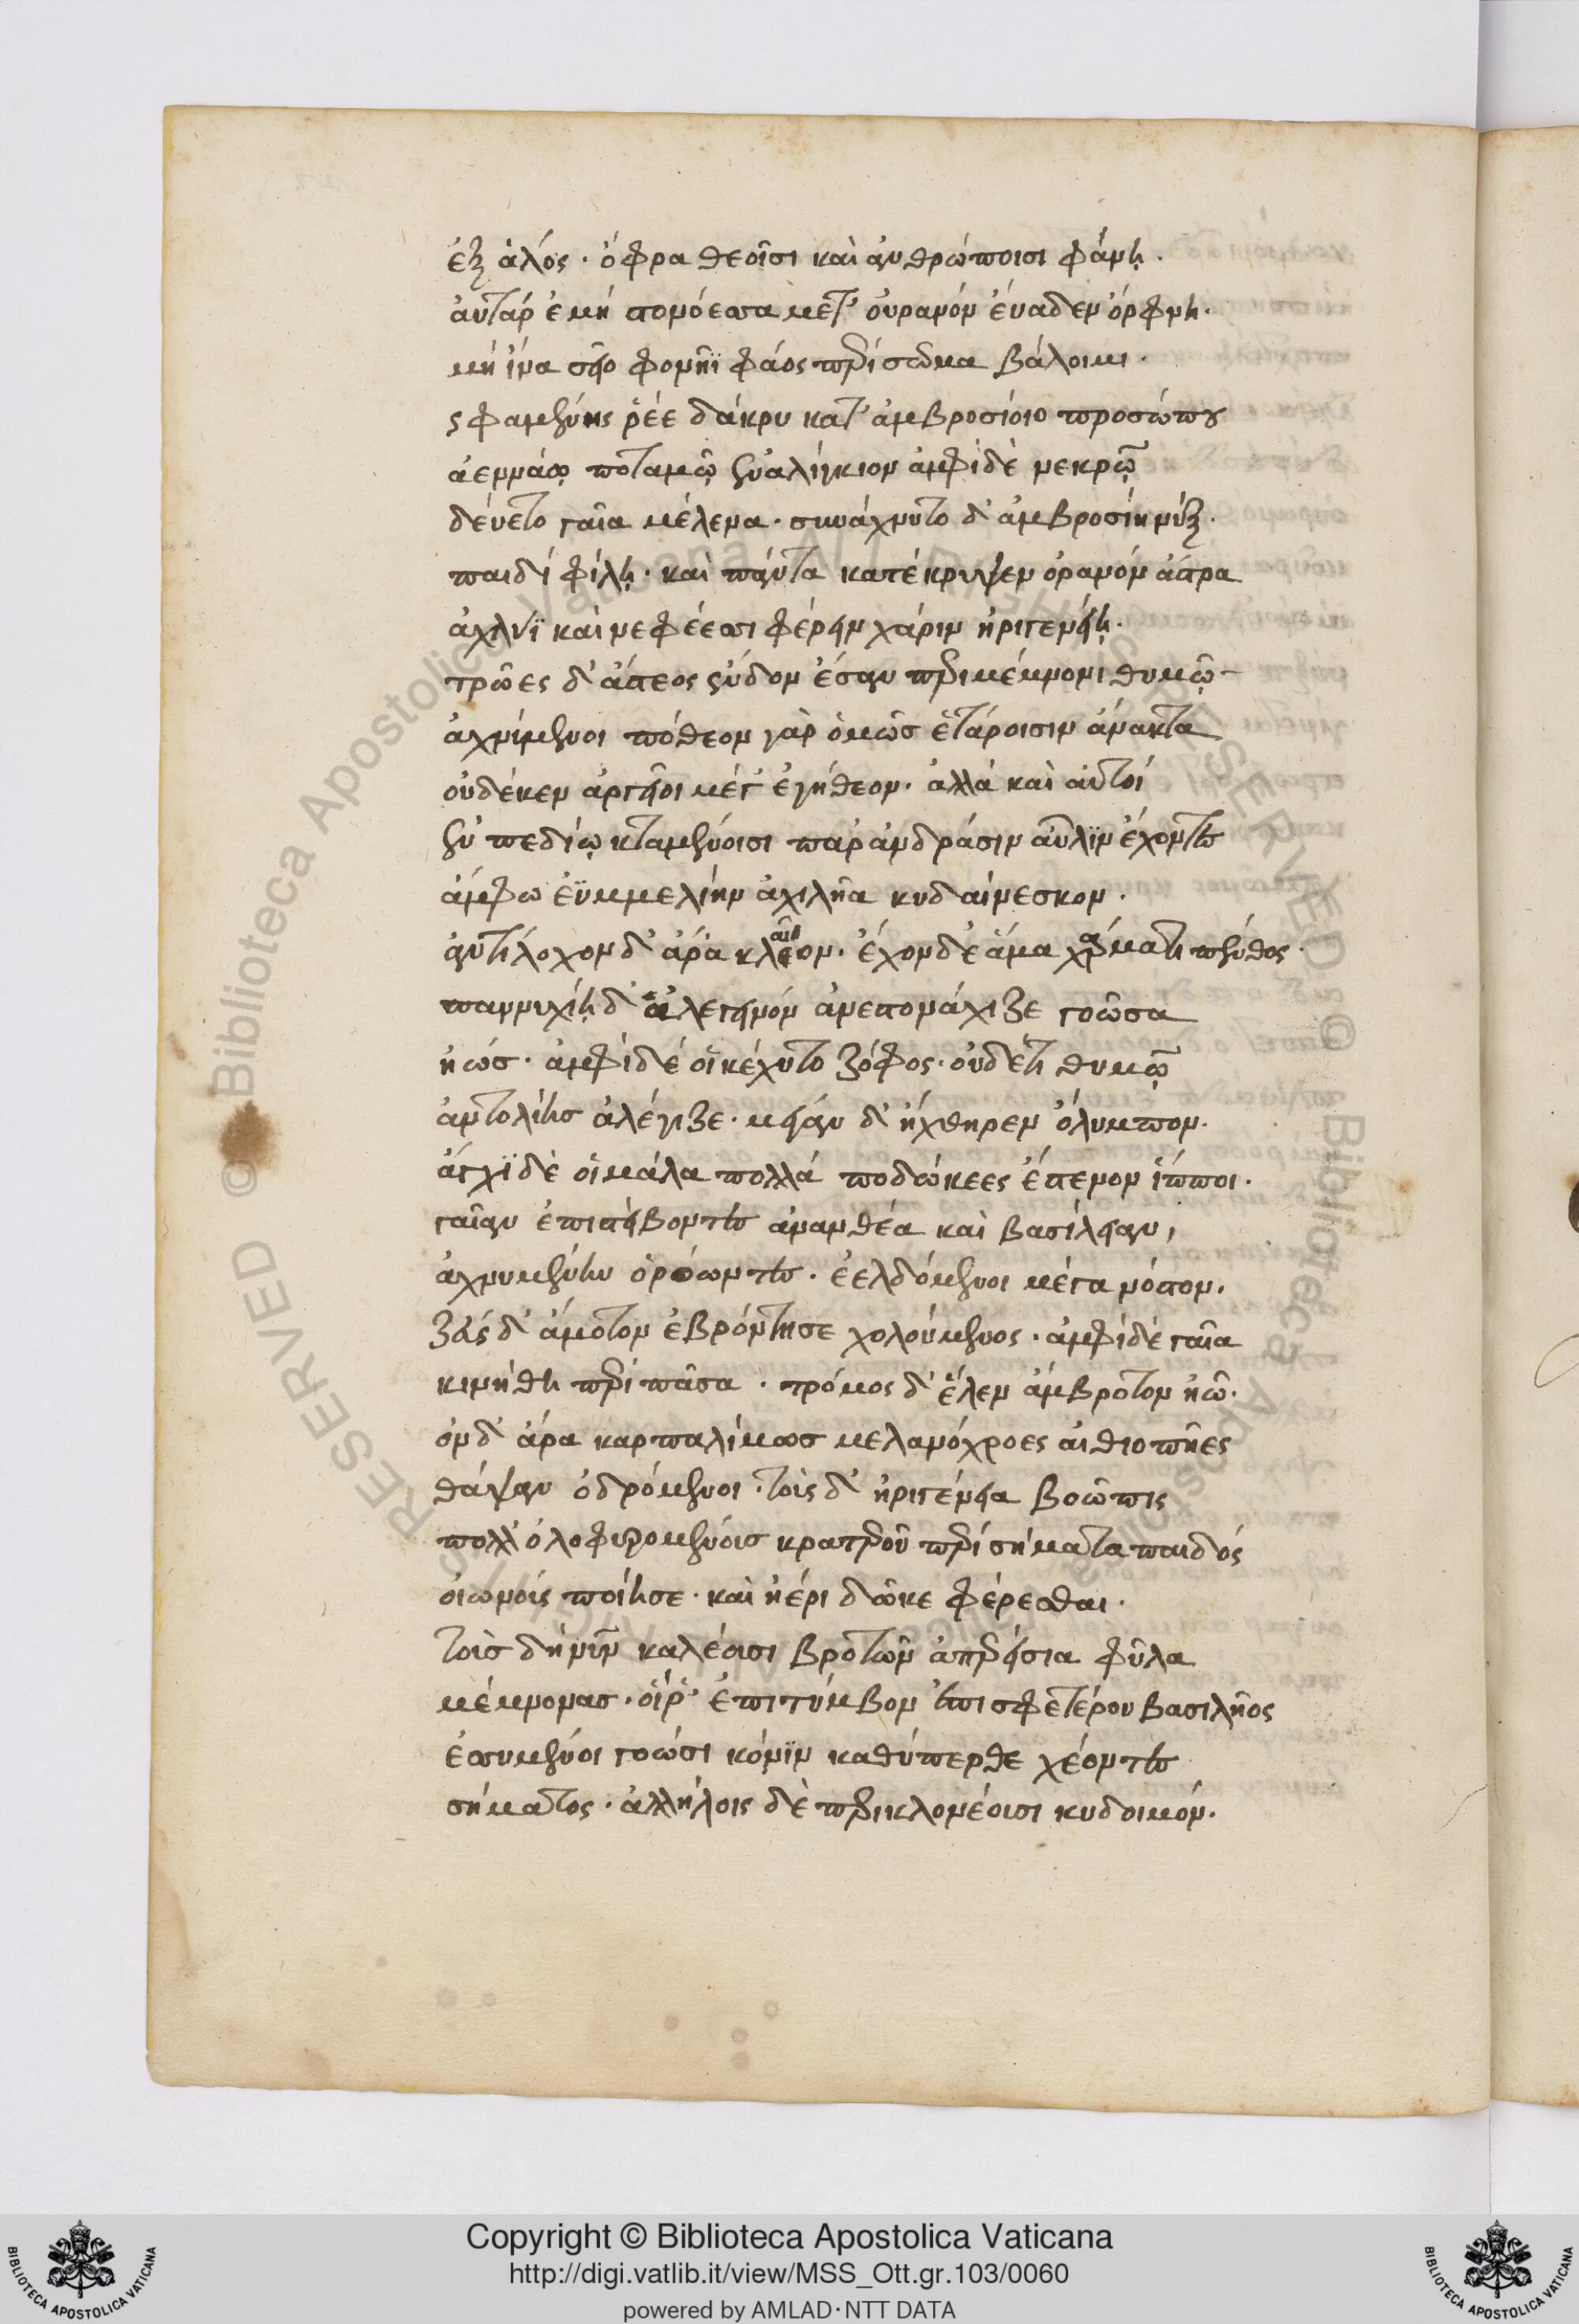 ἐξ ἁλός. ὄφρα θεοῖσι καὶ ἀνθρώποισι φάνῃ.
αὐτὰρ ἐμὴ στονόεσσα μετ' οὐρανὸν εὔαδεν ὄρφνη.
μὴ ἵνα σεῖο φονῆϊ φάος περὶ σῶμα βάλοιμι.
ς φαμένης ῥέε δάκρυ κατ' ἀμβροσίοιο προσώπου
ἀεννάῳ ποταμῷ ἐναλίγκιον ἀμφὶ δὲ νεκρῷ
δεύετο γαῖα μέλενα. συνάχνυτο δ' ἀμβροσίη νύξ.
παιδὶ φίλῃ. καὶ πάντα κατέκρυψεν οὐρανὸν ἄστρα
ἀχλύϊ καὶ νεφέεσσι φέρειν χάριν ἠριγενείῃ.
τρῶες δ' ἄστεος ἔνδον ἔσαν περὶ μέμνονι θυμῷ
ἀχνύμενοι πόθεον γὰρ ὁμῶς ἑτάροισιν ἄνακτα
οὐδέ κεν ἀργεῖοι μέγ' ἐγήθεον. ἀλλὰ καὶ αὐτοὶ
ἐν πεδίῳ κταμένοισι παρ' ἀνδράσιν αὖλιν ἔχοντες
ἄμφω ἐϋμμελίην ἀχιλῆα κυδαίνεσκον.
ἀντίλοχον δ' ἄρα κλαῖον. ἔχον δὲ ἅμα χάρματι πένθος.
παννυχίη δ' ἀλεγεινὸν ἀνεστονάχιζε γοῶσα
ἠώς. ἀμφὶ δέ οἱ κέχυτο ζόφος. οὐδέ τι θυμῷ
ἀντολίης ἀλέγιζε. μέγαν δ' ἤχθηρεν ὄλυμπον.
ἄγχι δὲ οἱ μάλα πολλὰ ποδώκεες ἔστενον ἵπποι.
γαῖαν ἐπιστείβοντες ἀνανθέα καὶ βασίλειαν,
ἀχνυμένην ὁρόωντες. ἐελδόμενοι μέγα νόστον.
ζεὺς δ' ἄμοτον ἐβρόντησε χολούμενος. ἀμφὶ δὲ γαῖα
κινήθη περὶ πᾶσα. τρόμος δ' ἕλεν ἄμβροτον ἠῶ.
ὃν δ' ἄρα καρπαλίμως μελανόχροες αἰθιοπῆες
θάψαν ὀδρόμενοι. τοῖς δ' ἠριγένεια βοῶπις
πολλ' ὀλοφυρομένοις κρατεροῦ περὶ σήματα παιδὸς
οἰωνοὺς ποίησε. καὶ ἠέρι δῶκε φέρεσθαι.
τοὺς δὴ νῦν καλέουσι βροτῶν ἀπερείσια φῦλα
μέμνονας. οἵ ῥ' ἐπὶ τύμβον ἔτι σφετέρου βασιλῆος
ἐσσυμένοι γοόωσι κόνιν καθύπερθε χέοντες
σήματος. ἀλλήλοις δὲ περικλονέουσι κυδοιμόν.
Copyright © Biblioteca Apostolica Vaticana
http://digi.vatlib.it/view/MSS_Ott.gr.103/0060
powered by AMLAD·NTT DATA